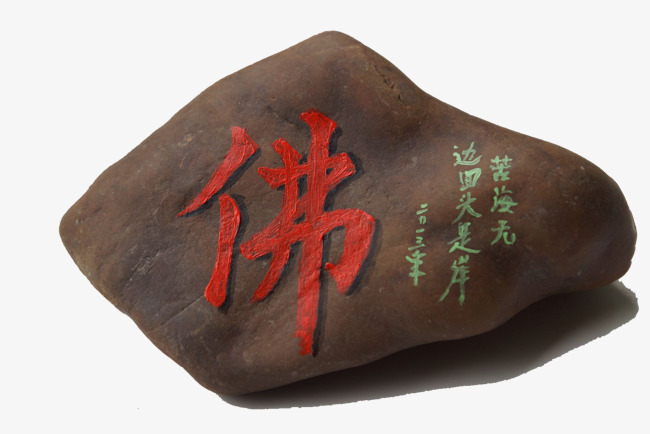 佛
苦海无
边回头是岸
二〇一三年